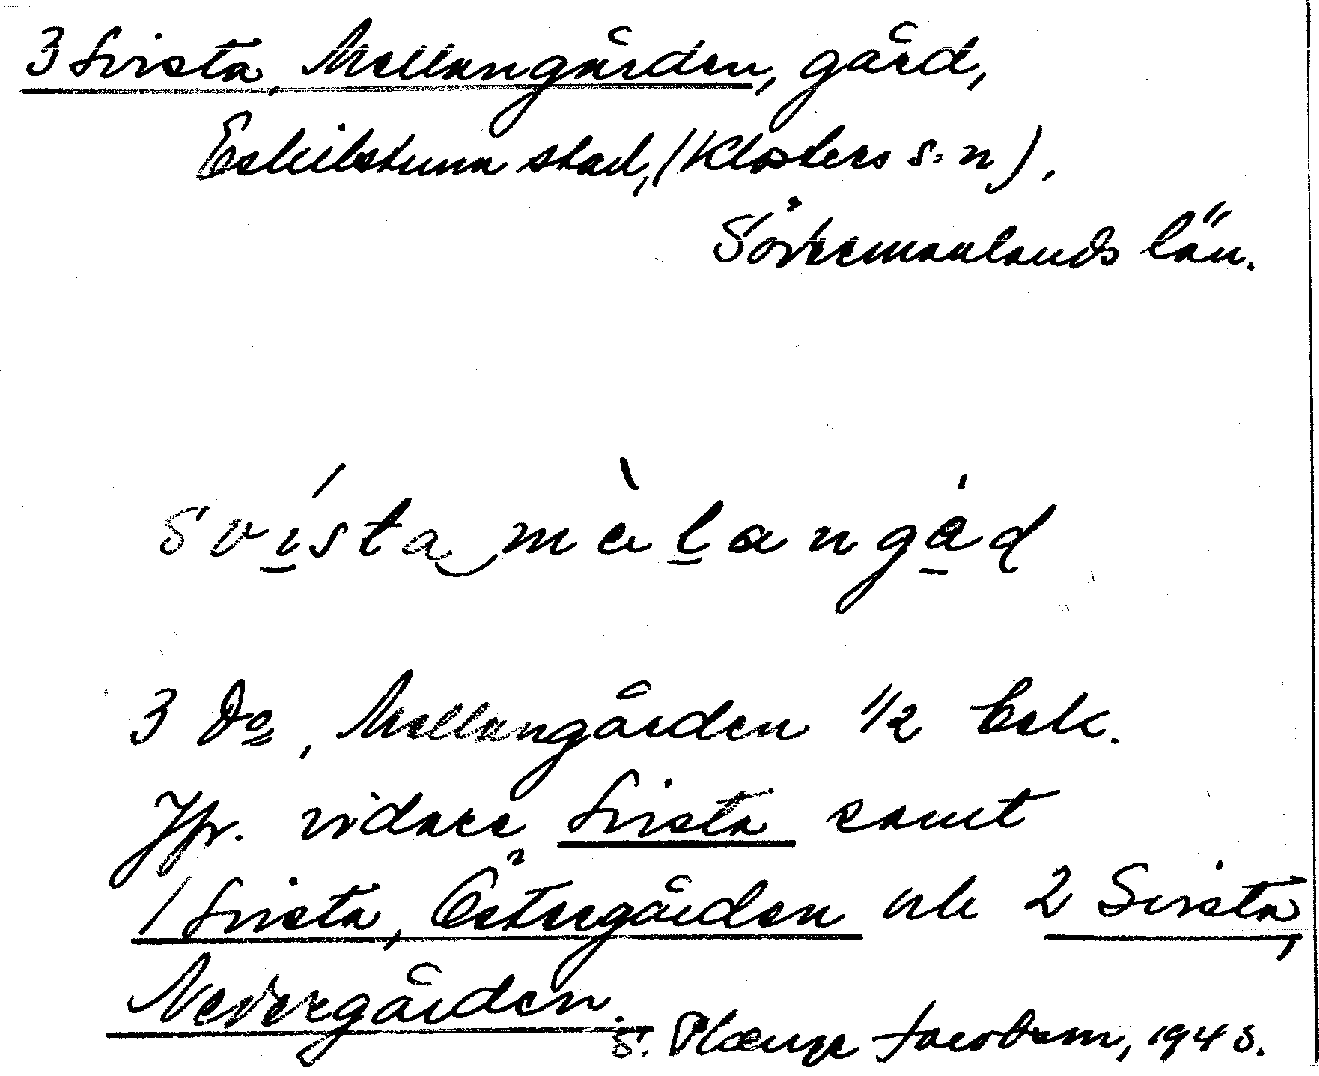 3 Svista, Mellangården, gård,
Eskilstuna stad, (Klosters s:n).
Södermanlands län.
svísta mèlangád
3 Do, Mellangården 1/2 
Jfr. vidare Svista samt
1 Svista, Östergården och 2 Svista,
Nedergården.
S. Plænge Jacobson, 1943.